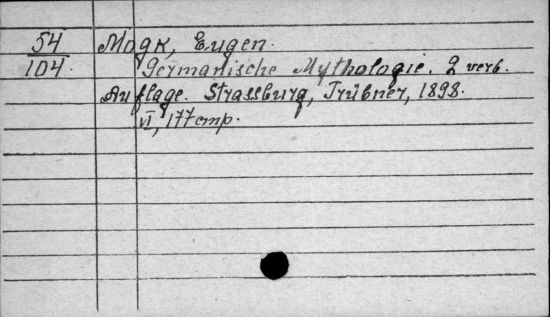 54 Mogk, Eugen.
104. Germanische Mythologie. 2 verb.
Auflage. Strassburg, Trübner, 1898.
VI, 177 стр.